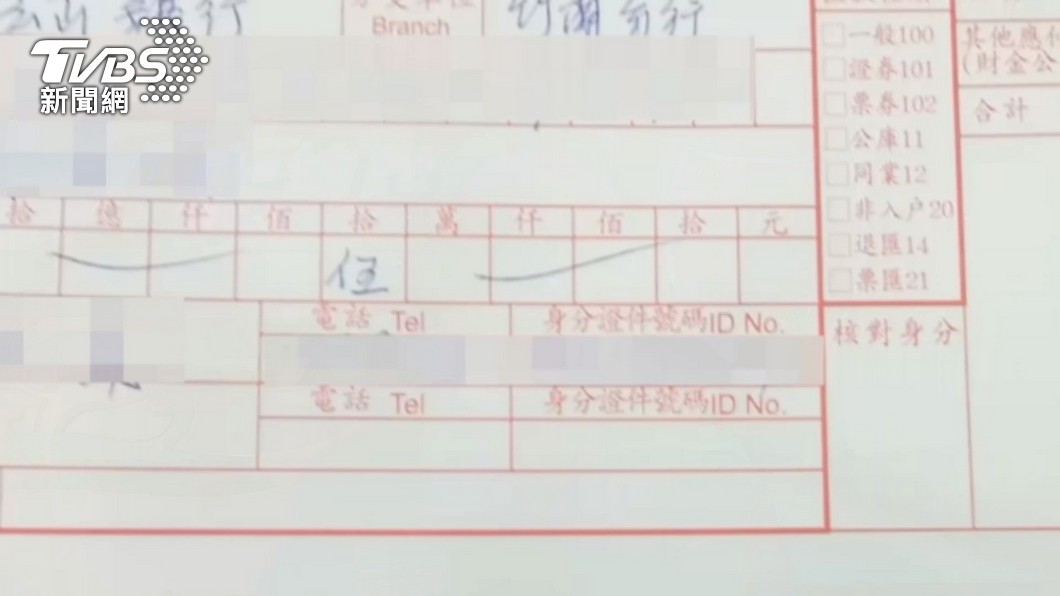 玉山銀行
Branch
竹蘭分行
TVBS
新聞網
□一般100
□證券101
□票券102
□公庫11
□同業12
□非入戶20
□退匯14
□票匯21
其他應
(財金公
合計
拾 億 仟 佰 拾 萬 仟 佰 拾 元
伍
電話 Tel 身分證件號碼ID No.
核對身分
電話 Tel 身分證件號碼ID No.